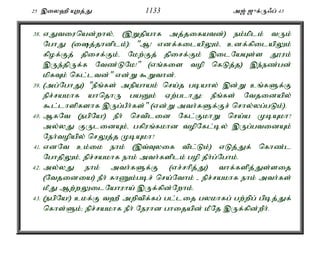 25 இலைஹி யுறத்து 1133 அஜ் ஜுக்ருஃப் 43
38. எதுவரையென்றால், (இறுதியாக அத்தகையவன்) நம்மிடம் வரும்
போது (ஷைத்தானிடம்) "ஆ! எனக்கிடையிலும், உனக்கிடையிலும்
கிழக்குத் திசைக்கும், மேற்குத் திசைக்கும் இடையேயுள்ள தூரம்
இருந்திருக்க வேண்டுமே!" (எங்களை வழி கெடுத்த) இந்நண்பன்
மிகவும் கெட்டவன்" என்று கூறுவான்.
39. (அப்போது) "நீங்கள் அநியாயம் செய்த படியால் இன்று உங்களுக்கு
நிச்சயமாக யாதொரு பயனும் ஏற்படாது. நீங்கள் வேதனையில்
கூட்டாளிகளாக இருப்பீர்கள்" (என்று அவர்களுக்குச் சொல்லப்படும்).
40. ஆகவே (நபியே!) நீர் செவிடனை கேட்குமாறு செய்ய முடியுமா?
அல்லது குருடனையும், பகிரங்கமான வழிகேட்டில் இருப்பவனையும்
நேர்வழியில் செலுத்த முடியுமா?
41. எனவே உம்மை நாம் (இவ்வுலகை விட்டும்) எடுத்துக் கொண்ட
போதிலும், நிச்சயமாக நாம் அவர்களிடம் பழி தீர்ப்போம்.
42. அல்லது நாம் அவர்களுக்கு (எச்சரித்து) வாக்களித்துள்ளதை
(வேதனையை) நீர் காணும்படிச் செய்வோம் - நிச்சயமாக நாம் அவர்கள்
மீது ஆற்றலுடையோராய் இருக்கின்றோம்.
43. (நபியே!) உமக்கு வஹீ அறிவிக்கப் பட்டதை பலமாகப் பற்றிப் பிடித்துக்
கொள்ளும்; நிச்சயமாக நீர் நேரான பாதையின் மீதே இருக்கின்றீர்.